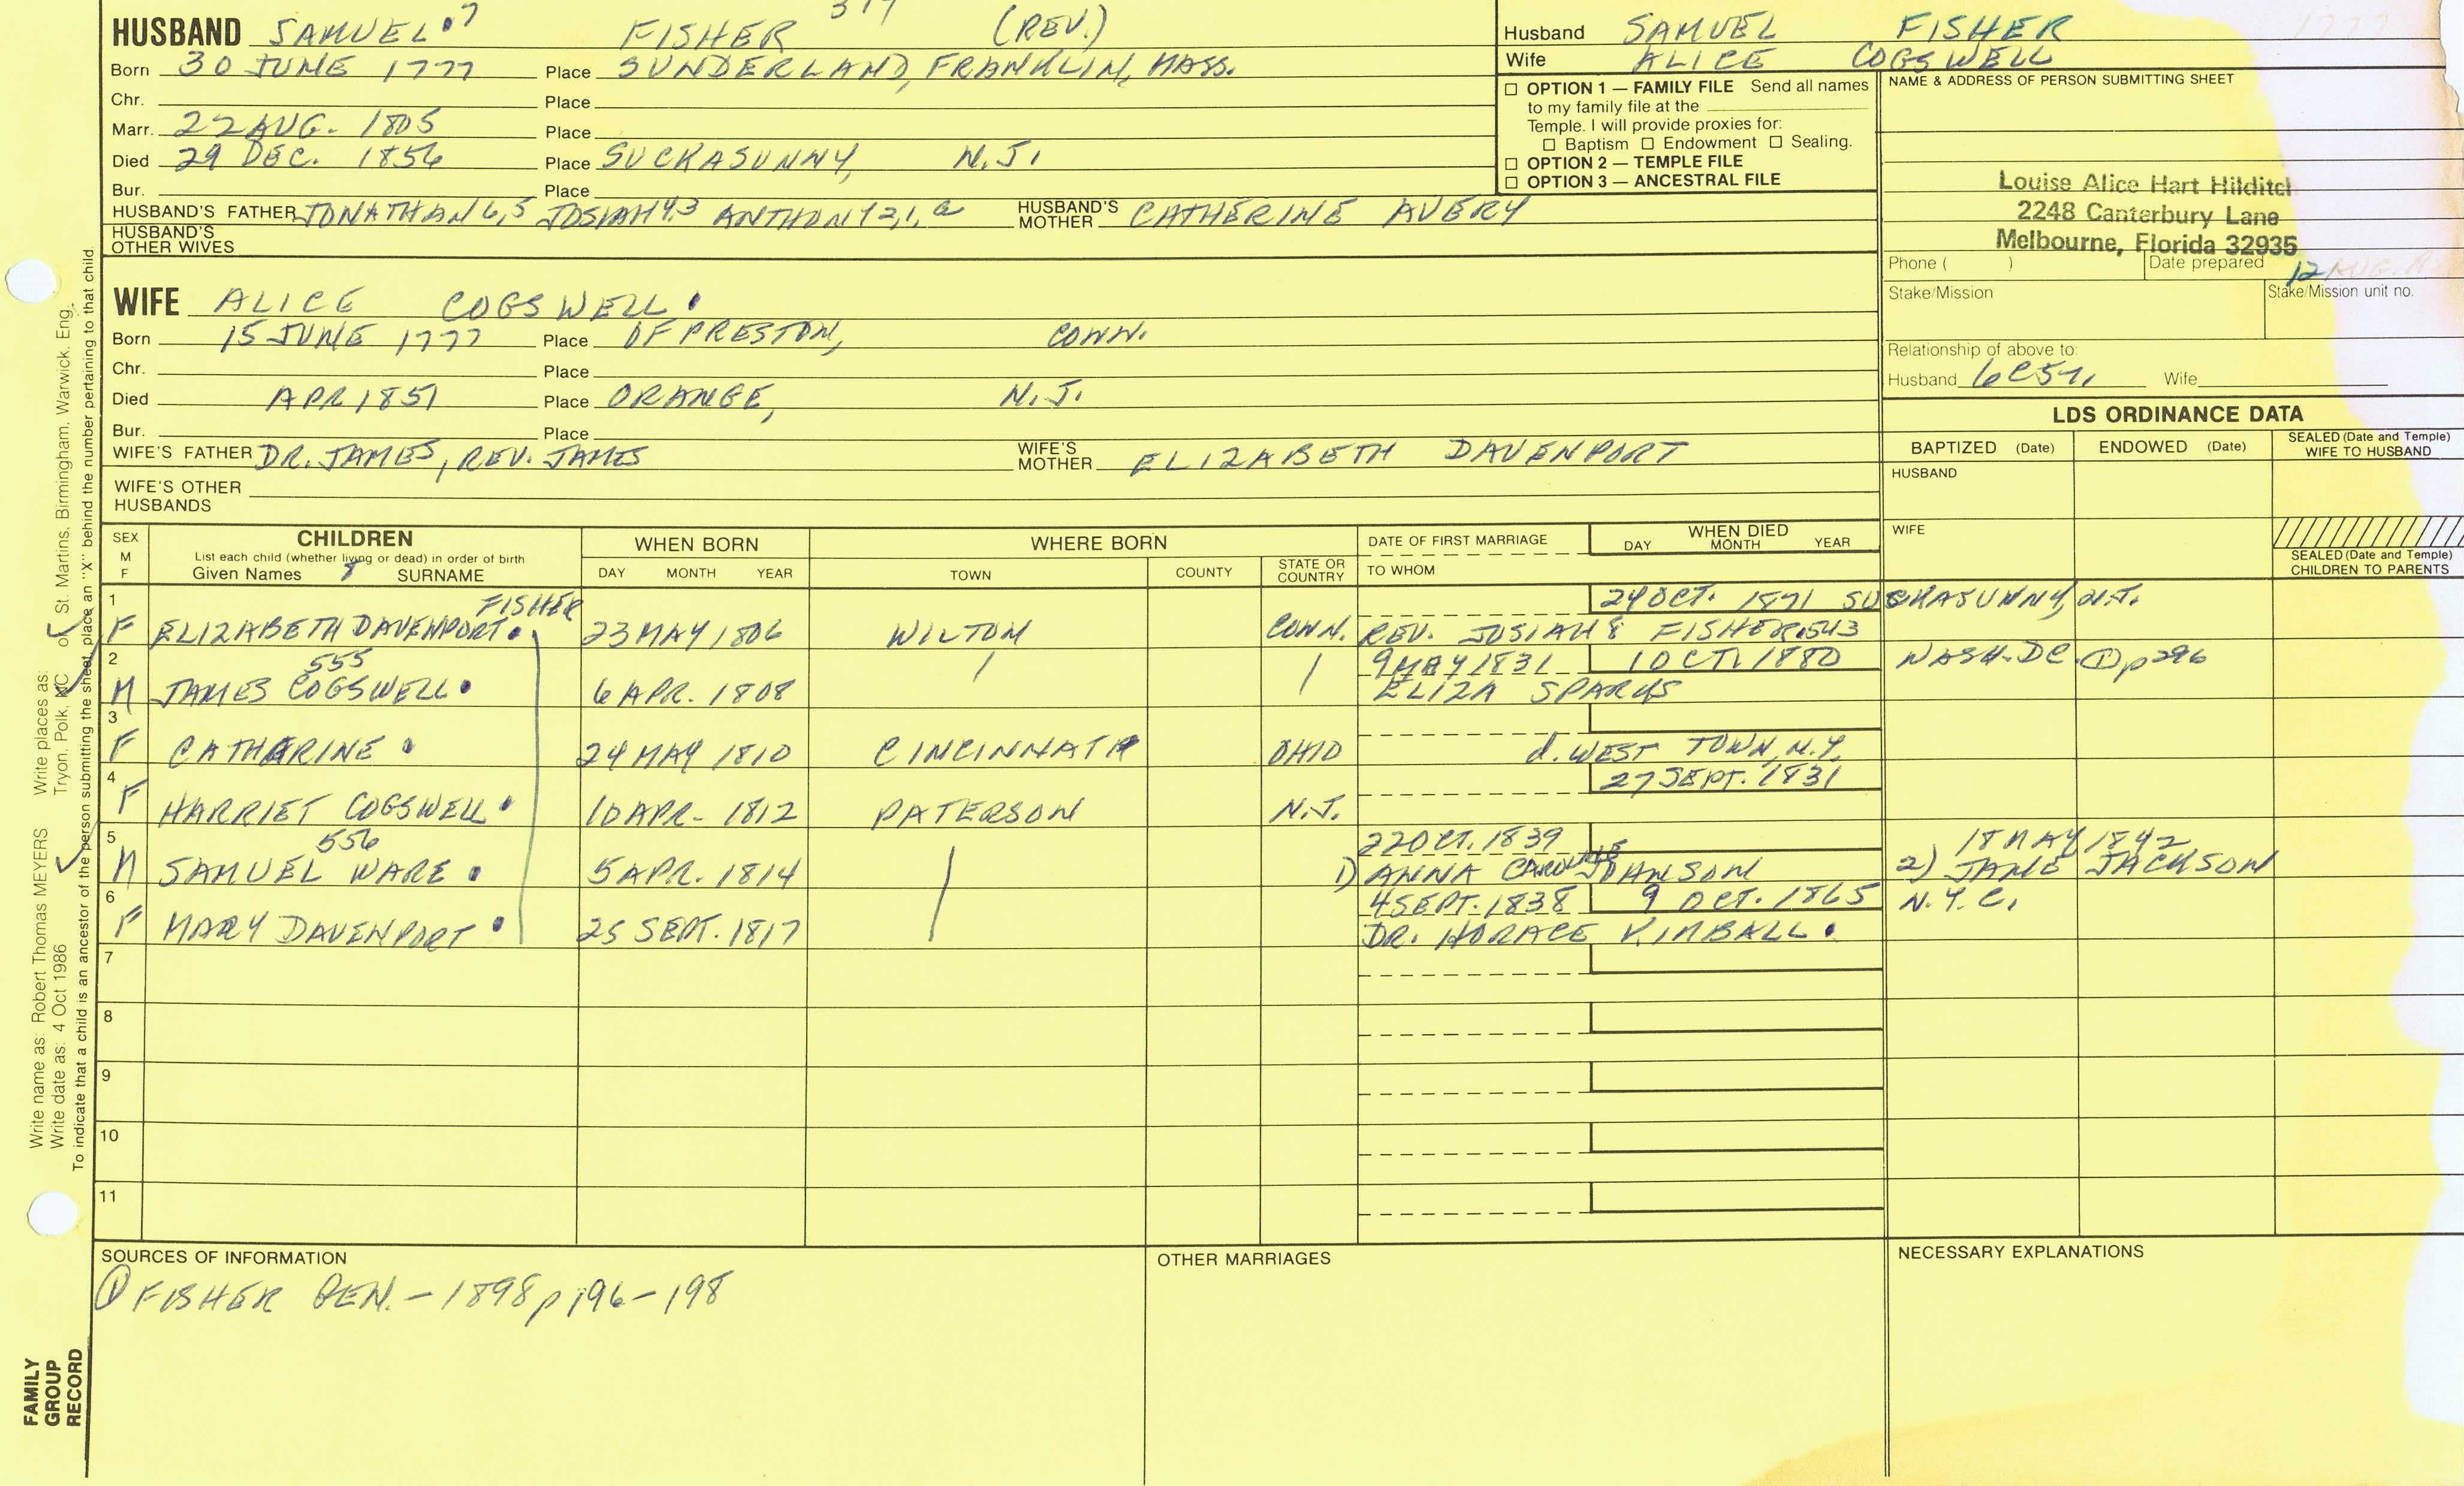 HUSBAND SAMUEL 7 FISHER (REV.)
Born 30 JUNE 1777 Place SUNDERLAND, FRANKLIN, MASS.
Chr. Place
Marr. 22 AUG. 1805 Place
Died 29 DEC. 1856 Place SUCKASUNNY, N.J.
Bur. Place
HUSBAND'S FATHER JONATHAN 6,5 JOSIAH 4,3 ANTHONY 2,1,a HUSBAND'S MOTHER CATHERINE AVERY
HUSBAND'S OTHER WIVES
Husband SAMUEL FISHER
Wife ALICE COGSWELL
☐ OPTION 1 — FAMILY FILE Send all names
to my family file at the
Temple. I will provide proxies for:
☐ Baptism ☐ Endowment ☐ Sealing.
☐ OPTION 2 — TEMPLE FILE
☐ OPTION 3 — ANCESTRAL FILE
NAME & ADDRESS OF PERSON SUBMITTING SHEET
Louise Alice Hart Hilditch
2248 Canterbury Lane
Melbourne, Florida 32935
Phone ( ) Date prepared 12 AUG.
Stake/Mission Stake/Mission unit no.
Relationship of above to:
Husband 6C5r, Wife
WIFE ALICE COGSWELL
Born 15 JUNE 1777 Place OF PRESTON, CONN.
Chr. Place
Died APR 1851 Place ORANGE, N.J.
Bur. Place
WIFE'S FATHER DR. JAMES, REV. JAMES WIFE'S MOTHER ELIZABETH DAVENPORT
WIFE'S OTHER HUSBANDS
LDS ORDINANCE DATA
BAPTIZED (Date) ENDOWED (Date) SEALED (Date and Temple) WIFE TO HUSBAND
HUSBAND
WIFE
SEALED (Date and Temple) CHILDREN TO PARENTS
SEX M F
CHILDREN
List each child (whether living or dead) in order of birth
Given Names 8 SURNAME
WHEN BORN
DAY MONTH YEAR
WHERE BORN
TOWN COUNTY STATE OR COUNTRY
DATE OF FIRST MARRIAGE
TO WHOM
WHEN DIED
DAY MONTH YEAR
1 FISHER 24 OCT. 1871 SUCKASUNNY, N.J.
F ELIZABETH DAVENPORT 23 MAY 1806 WILTON CONN. REV. JOSIAH 8 FISHER 543
2 555 9 MAY 1831 1 OCT. 1880 WASH. DC. ① p 296
M JAMES COGSWELL 6 APR. 1808 ELIZA SPARKS
3
F CATHARINE 24 MAY 1810 CINCINNATI OHIO d. WEST TOWN, N.Y.
4 27 SEPT. 1831
F HARRIET COGSWELL 10 APR. 1812 PATERSON N.J.
5 556 22 OCT. 1839 18 MAY 1842
M SAMUEL WARE 5 APR. 1814 1) ANNA CAROLINE JOHNSON 2) JANE JACKSON
6 4 SEPT. 1838 9 OCT. 1865 N.Y.C.
F MARY DAVENPORT 25 SEPT. 1817 DR. HORACE KIMBALL
7
8
9
10
11
SOURCES OF INFORMATION
① FISHER GEN. - 1898 p 196-198
OTHER MARRIAGES
NECESSARY EXPLANATIONS
Write name as: Robert Thomas MEYERS Write places as: of St. Martins, Birmingham, Warwick, Eng.
Write date as: 4 Oct 1986 Tryon, Polk, NC
To indicate that a child is an ancestor of the person submitting the sheet, place an "X" behind the number pertaining to that child.
FAMILY GROUP RECORD